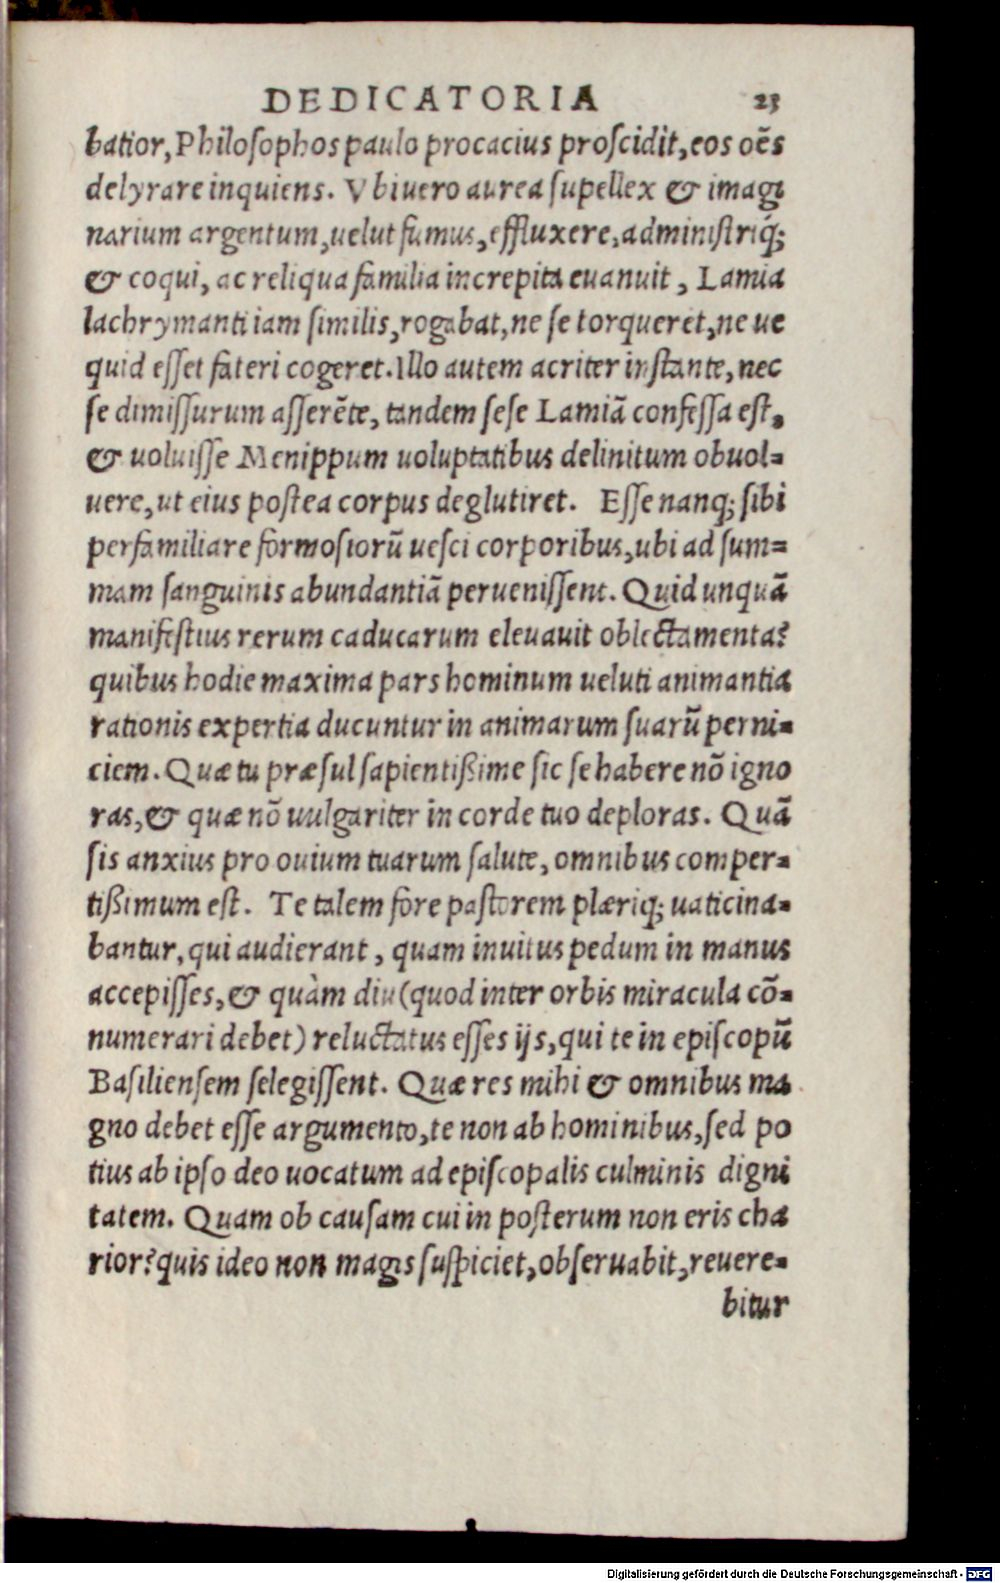 DEDICATORIA 23
batior, Philoſophos paulo procacius proſcidit, eos oēs
delyrare inquiens. Vbi uero aurea ſupellex & imagi
narium argentum, uelut fumus, effluxere, adminiſtriq́;
& coqui, ac reliqua familia increpita euanuit, Lamia
lachrymanti iam ſimilis, rogabat, ne ſe torqueret, ne ue
quid eſſet fateri cogeret. Illo autem acriter inſtante, nec
ſe dimiſſurum aſſerēte, tandem ſeſe Lamiā confeſſa eſt,
& uoluiſſe Menippum uoluptatibus delinitum obuol=
uere, ut eius poſtea corpus deglutiret. Eſſe nanq; ſibi
perfamiliare formoſiorū ueſci corporibus, ubi ad ſum=
mam ſanguinis abundantiā perueniſſent. Quid unquā
manifeſtius rerum caducarum eleuauit oblectamenta?
quibus hodie maxima pars hominum ueluti animantia
rationis expertia ducuntur in animarum ſuarū perni=
ciem. Quæ tu præſul ſapientißime ſic ſe habere nō igno
ras, & quæ nō uulgariter in corde tuo deploras. Quā
ſis anxius pro ouium tuarum ſalute, omnibus comper=
tißimum eſt. Te talem fore paſtorem plæriq; uaticina=
bantur, qui audierant, quam inuitus pedum in manus
accepiſſes, & quàm diu (quod inter orbis miracula cō=
numerari debet) reluctatus eſſes ijs, qui te in epiſcopū
Baſilienſem ſelegiſſent. Quæ res mihi & omnibus ma
gno debet eſſe argumento, te non ab hominibus, ſed po
tius ab ipſo deo uocatum ad epiſcopalis culminis digni
tatem. Quam ob cauſam cui in poſterum non eris cha
rior? quis ideo non magis ſuſpiciet, obſeruabit, reuere=
bitur
Digitalisierung gefördert durch die Deutsche Forschungsgemeinschaft - DFG